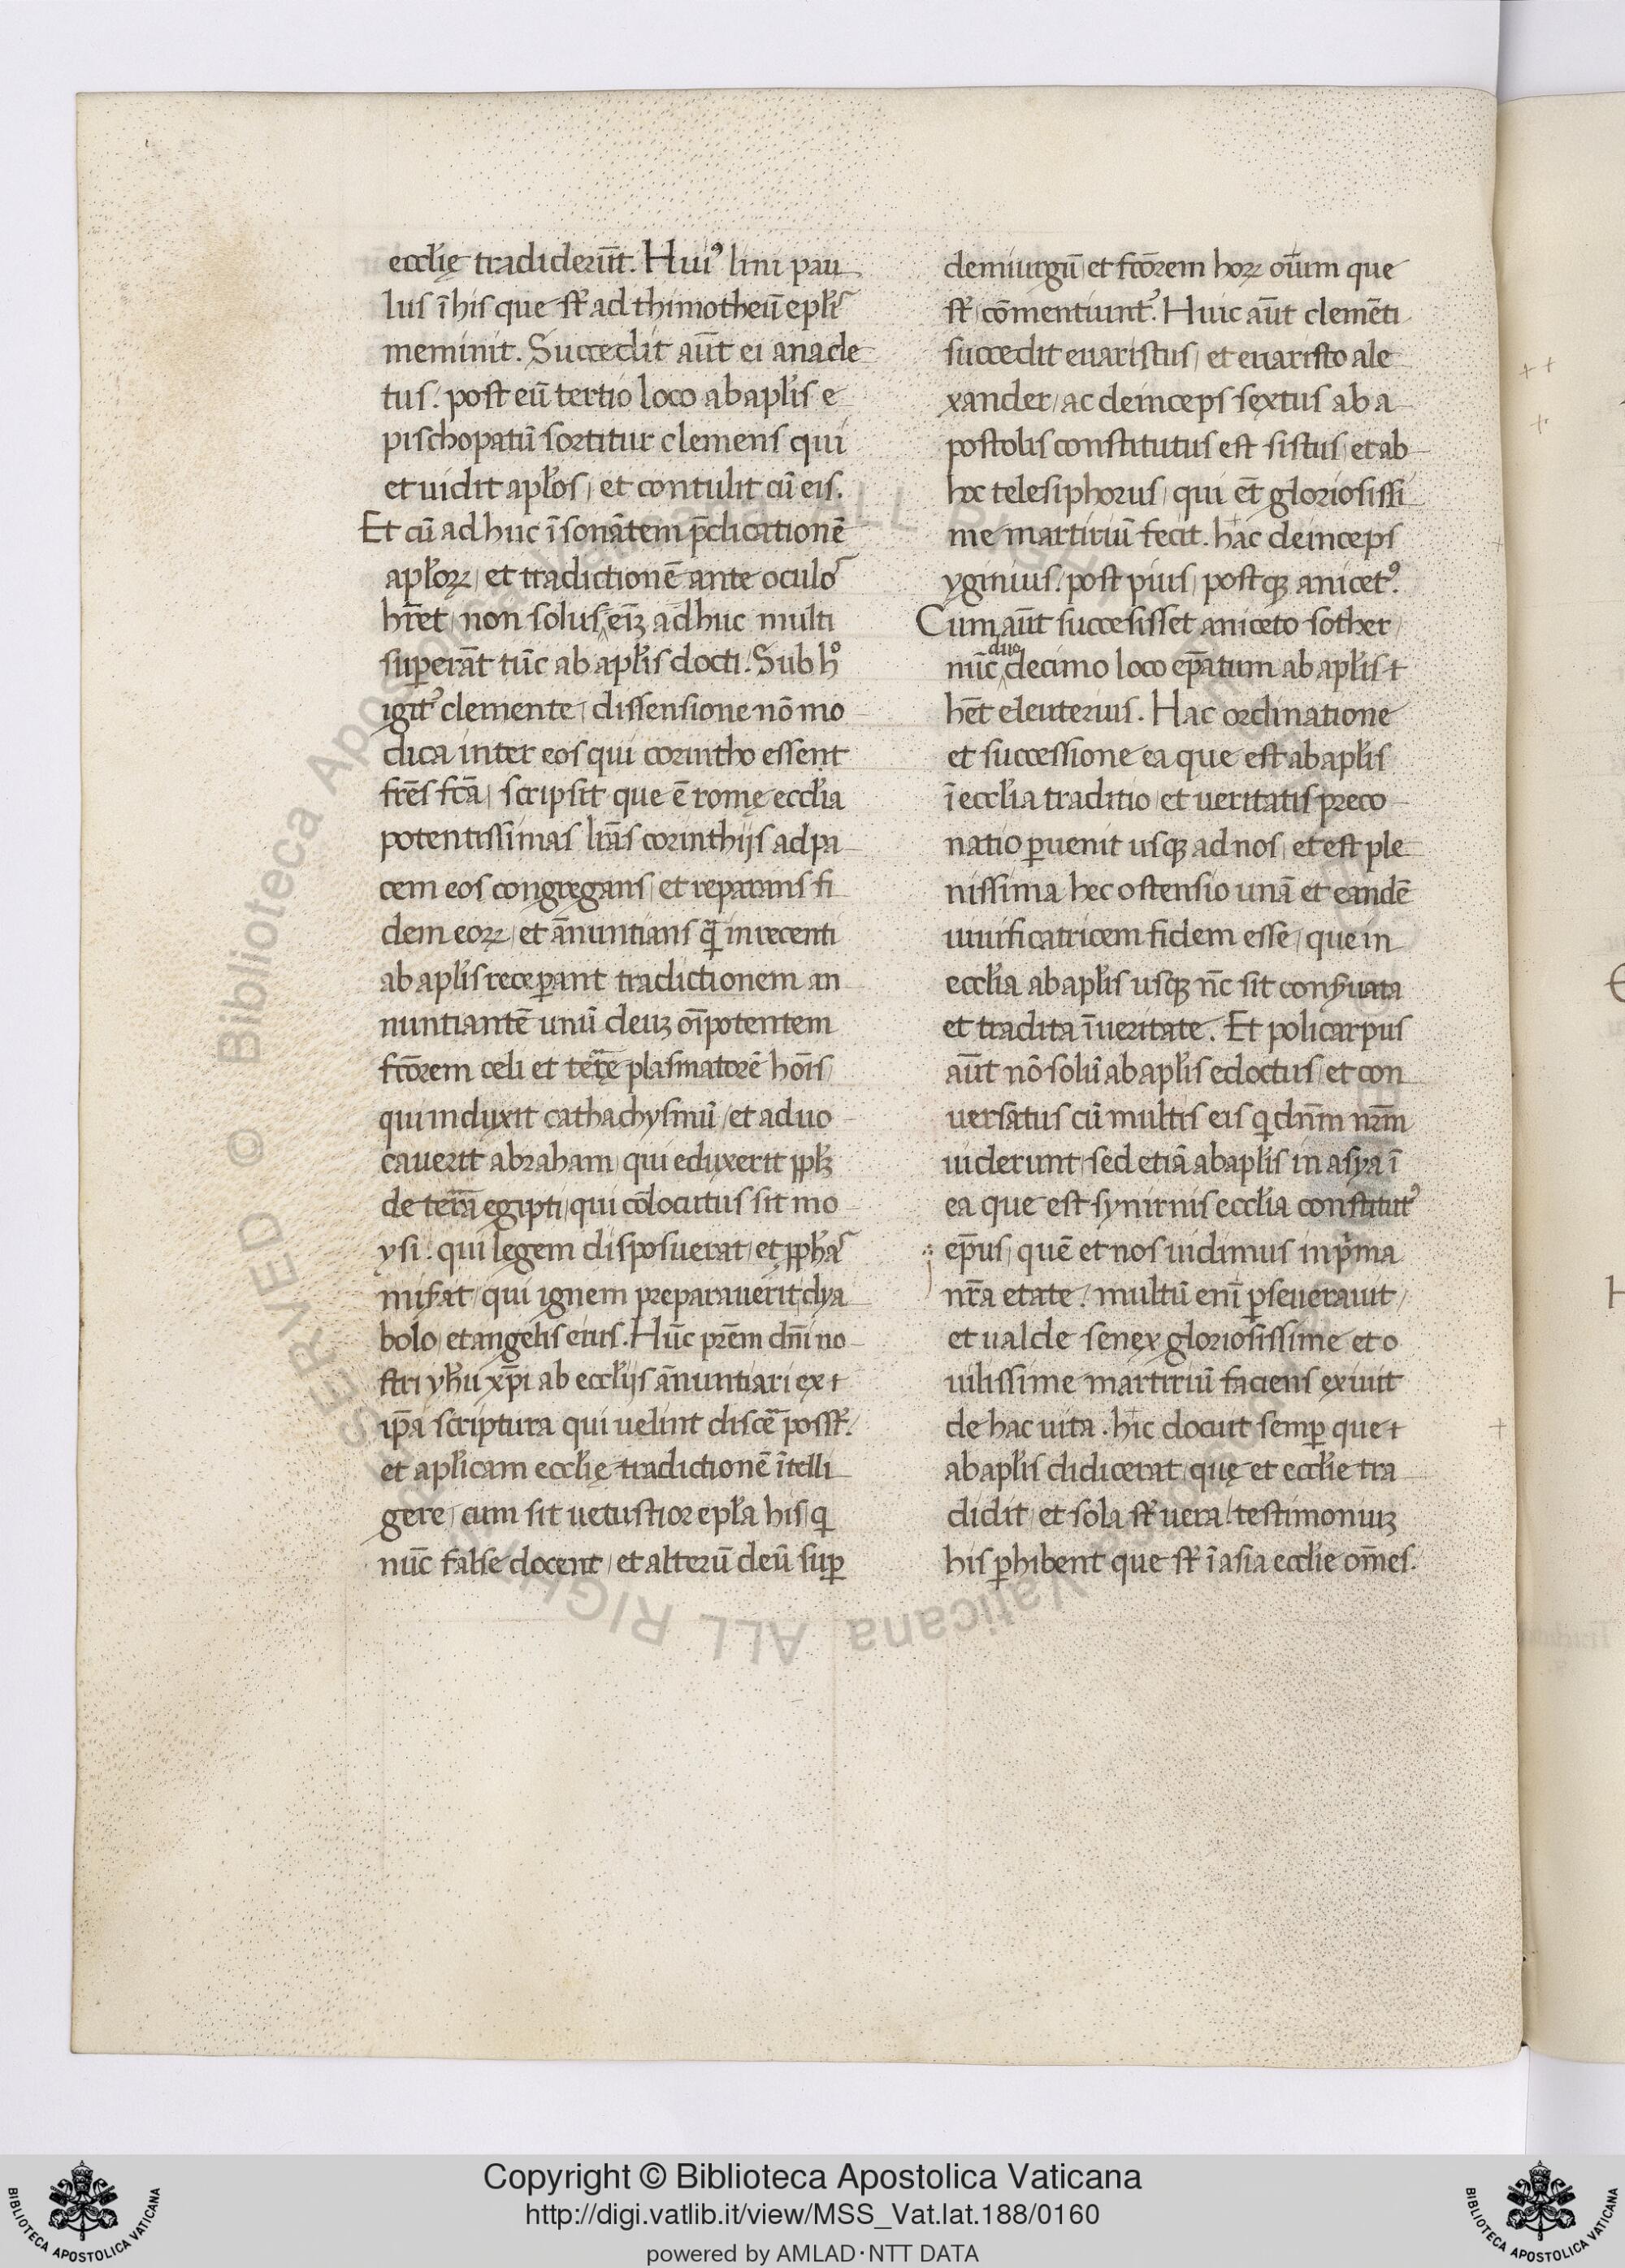 ecclīę tradiderūt. Huiꝰ lini pau
lus ī his que st̄ ad thimotheū epl̄is
meminit. Succedit aūt ei anacle
tus. post eū tertio loco ab apl̄is e
pischopatū sortitur clemens qui
et uidit apl̄os, et contulit cū eis.
Et cū adhuc īsonātem p̄dicationē
apl̄oꝝ, et tradictionē ante oculos
hr̄et, non solus, eīz adhuc multi
suꝑerāt tūc ab apl̄is docti. Sub hº
igit᷑ clemente, dissensione nō mo
dica inter eos qui corintho essent
fr̄es fc̄ā, scripsit que ē romę eccl̄ia
potentissimas lr̄as corinthijs ad pa
cem eos congregans, et reparans fi
dem eoꝝ, et ānuntians q̄ in recenti
ab apl̄is receꝑant tradictionem an
nuntiantē unū deuz oīpotentem
fc̄orem celi et terrę plasmatorē hoīs,
qui induxit cathachysmū, et aduo
cauerit abraham, qui eduxerit pplz̄
de terra egipti, qui cōlocutus sit mo
ysi. qui legem disposuerat, et ꝓphas
miserat, qui ignem preparauerit dya
bolo, et angelis eius. Hūc pr̄em dn̄i no
stri yhū xp̄i ab eccl̄ijs ānuntiari ex
ip̄a scriptura qui uelint discere posst̄.
et apl̄icam eccl̄ię tradictionē ītelli
gere, cum sit uetustior epl̄a his, q
nūc false docent, et alterū deū suꝑ
demiurgū, et fc̄orem hoꝝ oīum que
st̄, cōmentiunt᷑. Huic aūt clemēti
succedit euaristus, et euaristo ale
xander, ac deinceps sextus ab a
postolis constitutus est sistus, et ab
hoc telesiphorus, qui et̄ gloriosissi
me martiriū fecit. hāc deinceps
yginius. post pius, postqꝫ anicetꝰ.
Cum aūt succesisset aniceto sother,
duo
nūc decimo loco ep̄atum ab apl̄is
hēt eleuterius. Hac ordinatione
et successione ea que est ab apl̄is
ī eccl̄ia traditio, et ueritatis preco
natio ꝑuenit usqꝫ ad nos, et est ple
nissima hec ostensio unā et eandē
uiuificatricem fidem esse, que in
eccl̄ia ab apl̄is usqꝫ nc̄ sit conseruata
et tradita ī ueritate. Et policarpus
aūt nō solū ab apl̄is edoctus, et con
uersatus cū multis eis q dn̄m nr̄m
uiderunt, sed etiā ab apl̄is in asya ī
ea que est synirnis eccl̄ia constitutꝰ
ep̄us, quē et nos uidimus in prima
nr̄a etate. multū enī ꝑseuerauit,
et ualde senex gloriosissime et o
uilissime martiriū faciens exiuit
de hac uita. hic docuit semꝑ que
ab apl̄is didicerat, quę et eccl̄ie tra
didit, et sola st̄ uera. testimoniuz
his ꝑhibent que st̄ ī asia eccl̄ie om̄es.
Copyright © Biblioteca Apostolica Vaticana
http://digi.vatlib.it/view/MSS_Vat.lat.188/0160
powered by AMLAD·NTT DATA
BIBLIOTECA APOSTOLICA VATICANA
BIBLIOTECA APOSTOLICA VATICANA